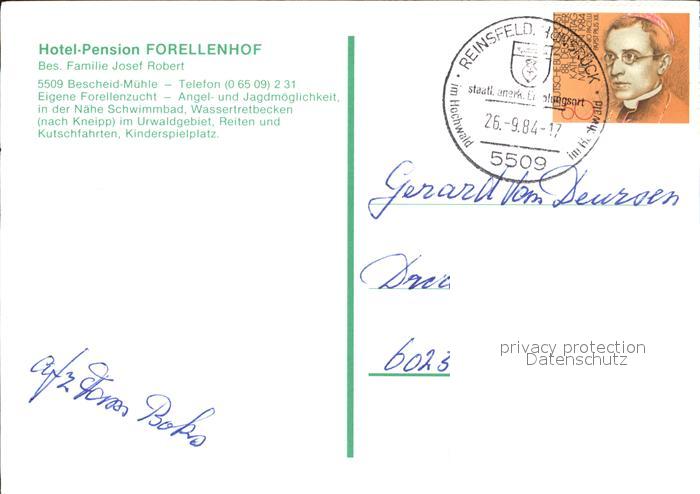 Hotel-Pension FORELLENHOF
Bes. Familie Josef Robert
5509 Bescheid-Mühle – Telefon (0 65 09) 2 31
Eigene Forellenzucht – Angel- und Jagdmöglichkeit,
in der Nähe Schwimmbad, Wassertretbecken
(nach Kneipp) im Urwaldgebiet, Reiten und
Kutschfahrten, Kinderspielplatz.
REINSFELD, HUNSRÜCK
staatl. anerk. Erholungsort
im Hochwald
26.-9.84-17
im Hochwald
5509
60
Gerard Van Deursen
6023
privacy protection
Datenschutz
afz